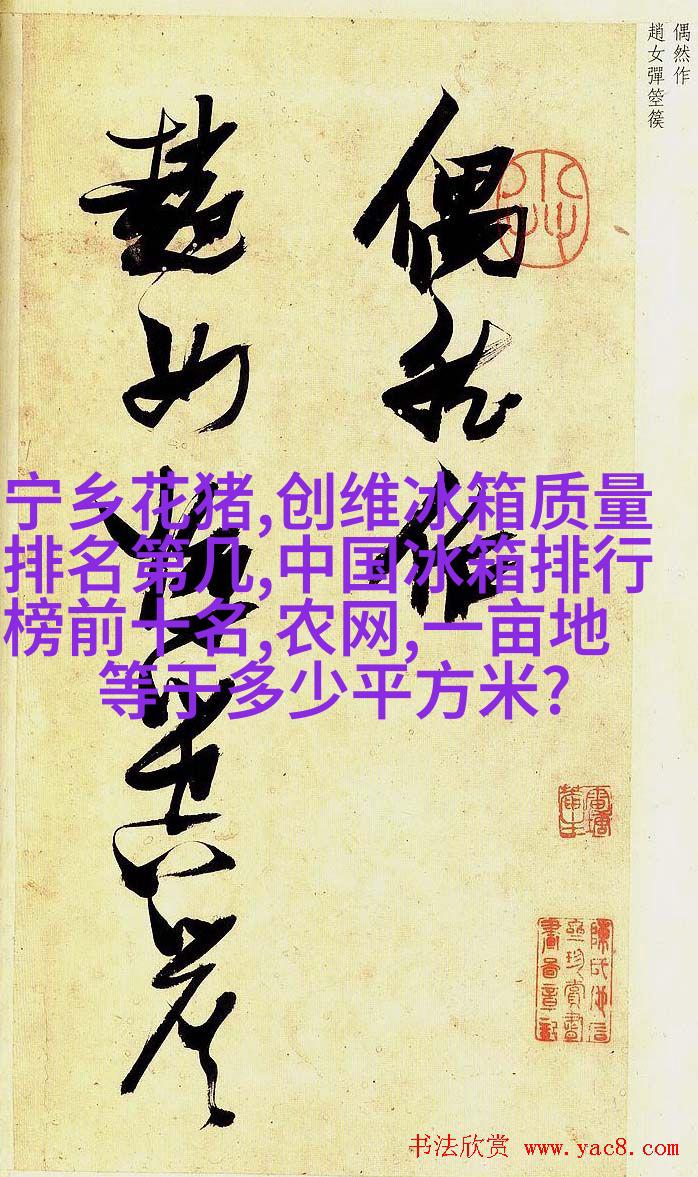 偶然作
趙女彈箜篌
偶然作
趙女彈箜篌
宁乡花猪,创维冰箱质量
排名第几,中国冰箱排行
榜前十名,农网,一亩地
等于多少平方米?
书法欣赏 www.yac8.com